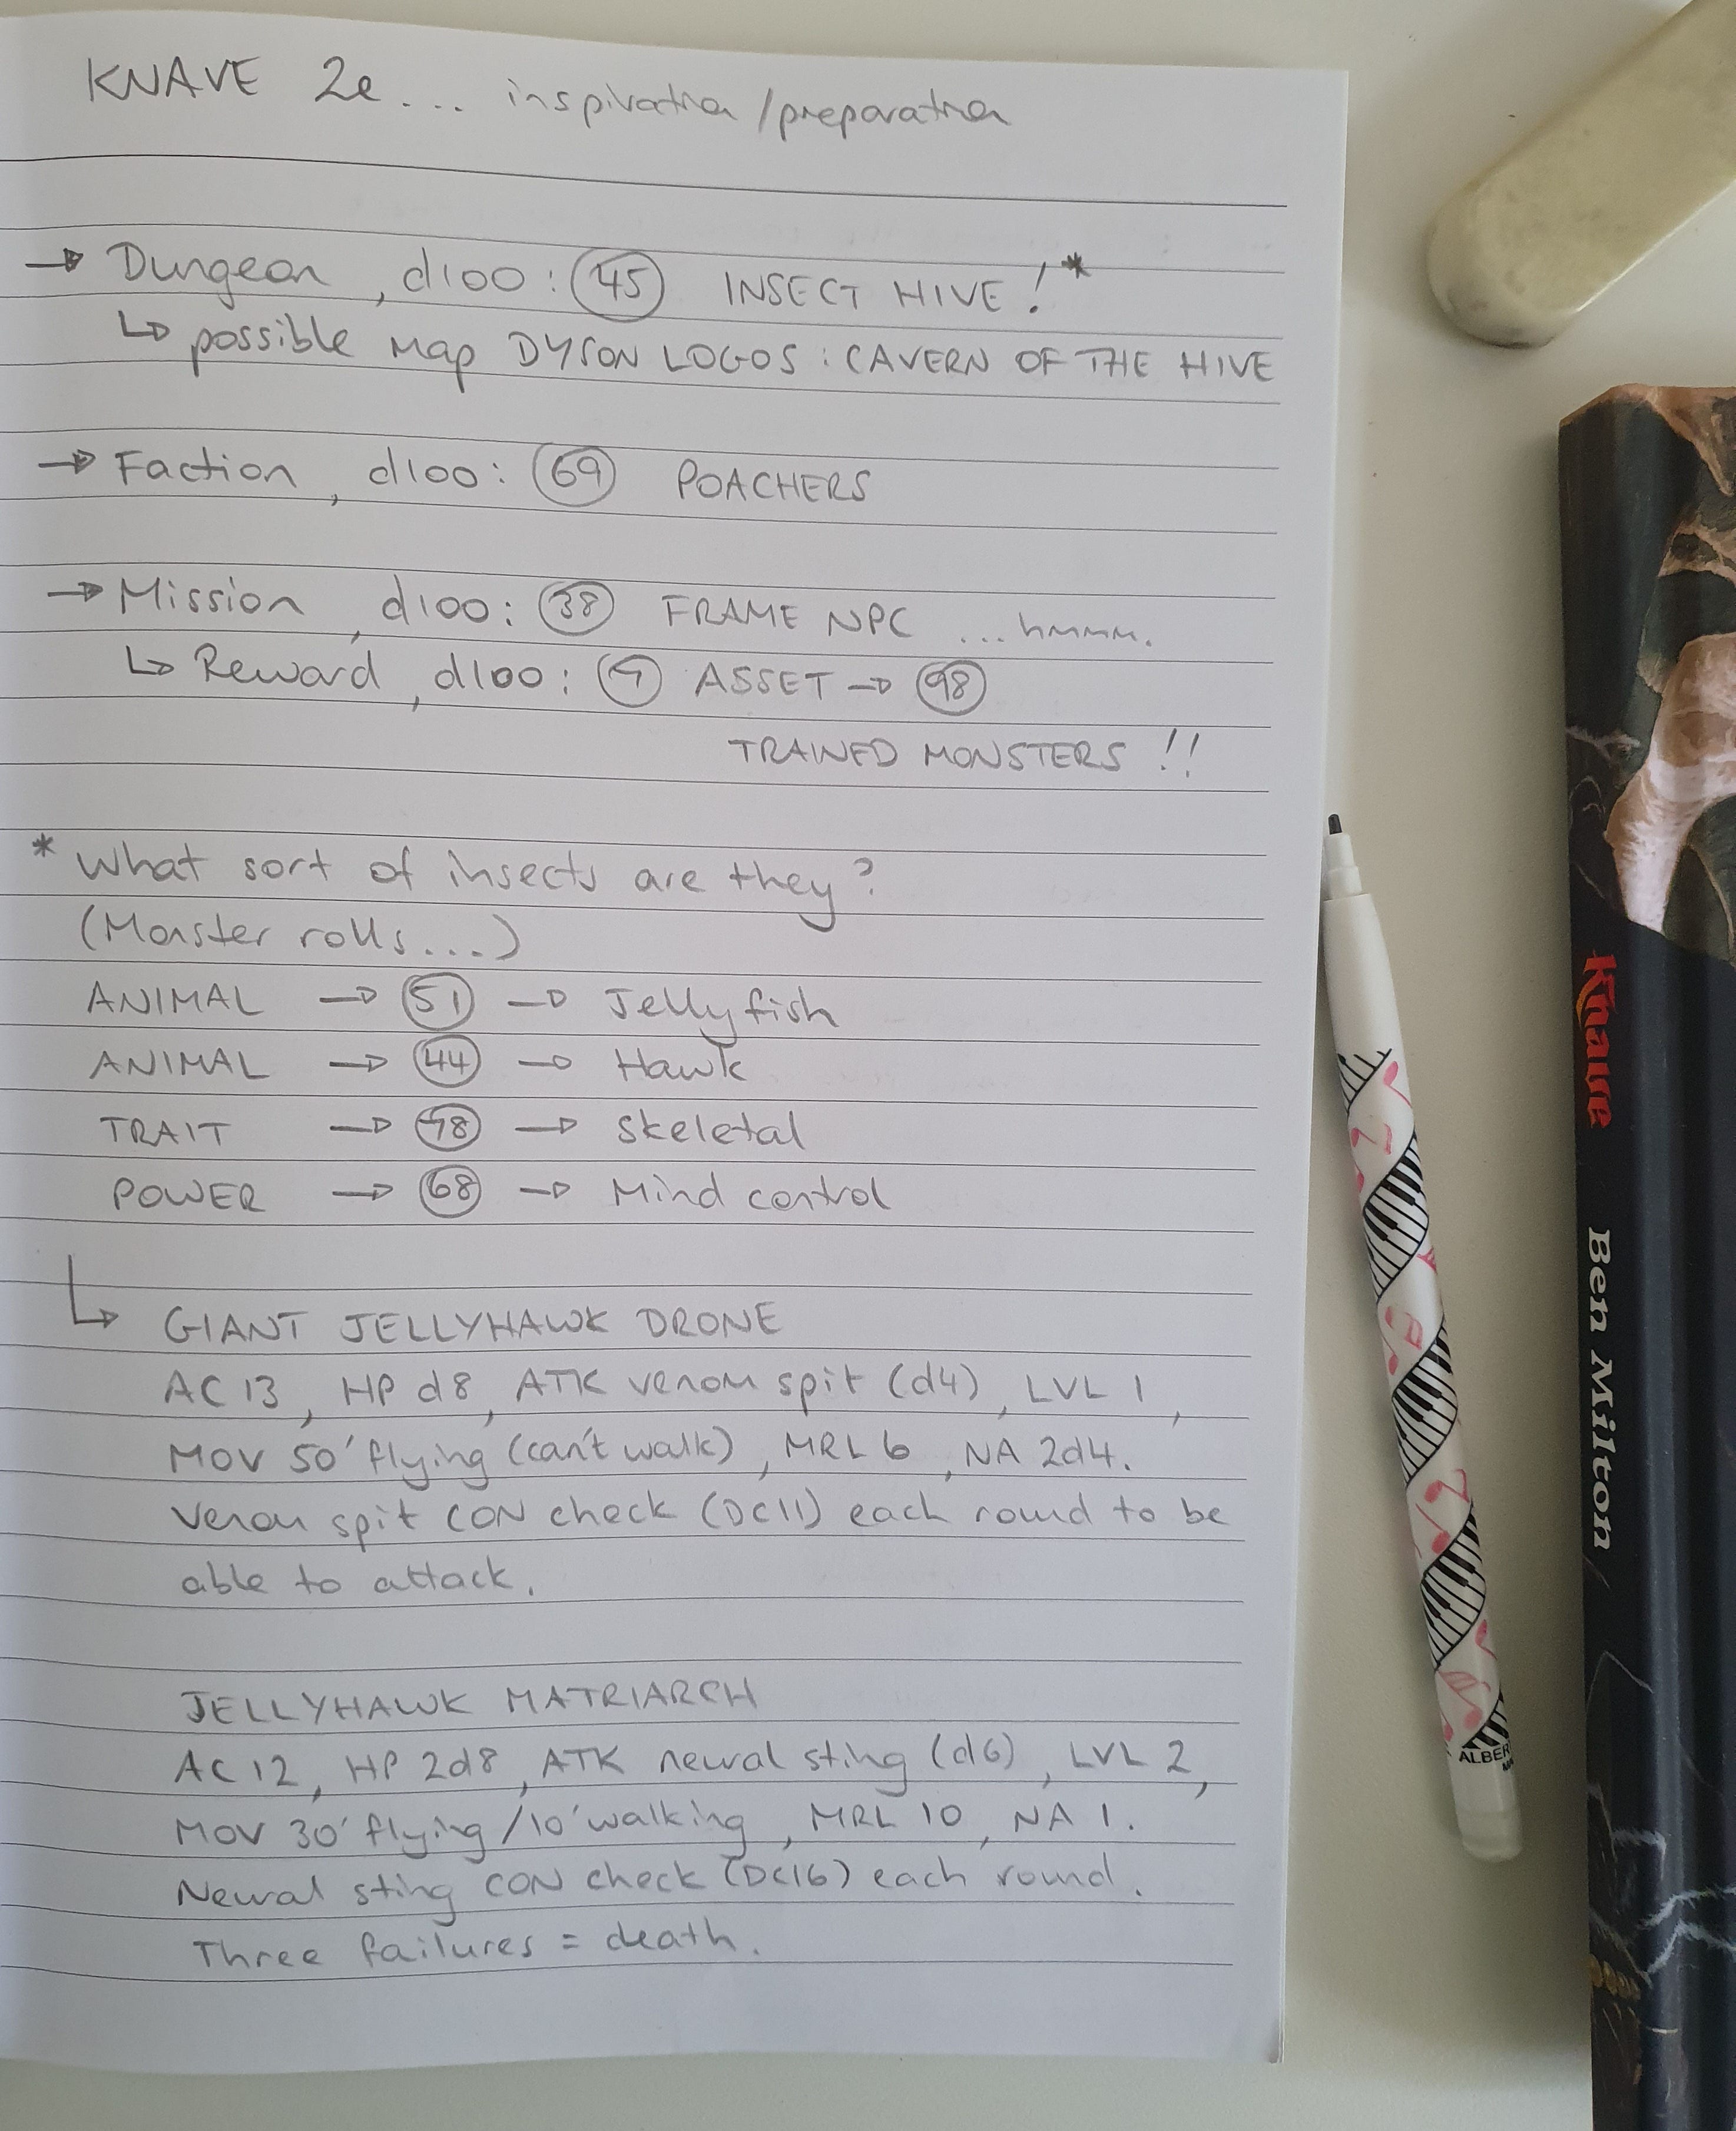 KNAVE 2e.... inspiration/preparation
→ Dungeon, d100: 45 INSECT HIVE! *
↳ possible map DYSON LOGOS: CAVERN OF THE HIVE
→ Faction, d100: 69 POACHERS
→ Mission, d100: 38 FRAME NPC ...hmmm.
↳ Reward, d100: 7 ASSET → 98
TRAINED MONSTERS!!
* What sort of insects are they?
(Monster rolls....)
ANIMAL → 51 → Jellyfish
ANIMAL → 44 → Hawk
TRAIT → 78 → Skeletal
POWER → 68 → Mind control
↳ GIANT JELLYHAWK DRONE
AC 13, HP d8, ATK venom spit (d4), LVL 1,
MOV 50' flying (can't walk), MRL 6, NA 2d4.
Venom spit CON check (DC11) each round to be
able to attack.
JELLYHAWK MATRIARCH
AC 12, HP 2d8, ATK neural sting (d6), LVL 2,
MOV 30' flying/10' walking, MRL 10, NA 1.
Neural sting CON check (DC16) each round.
Three failures = death.
Knave Ben Milton